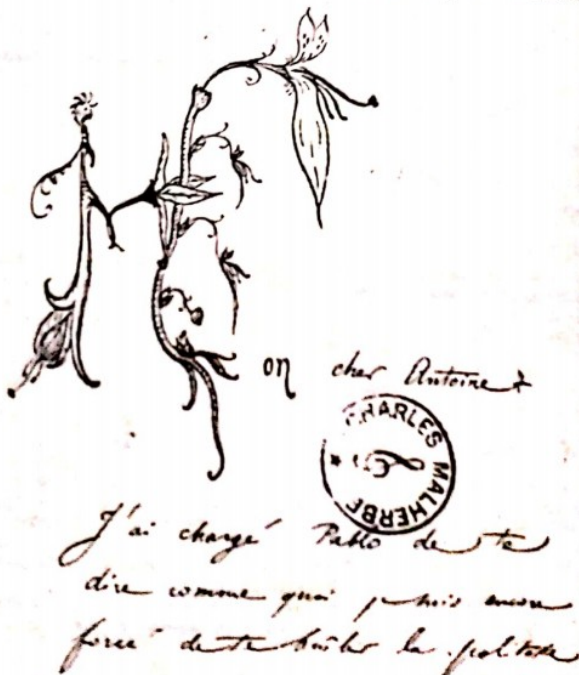 Mon cher Antoine
CHARLES MALHERBE
J'ai chargé Pablo de te
dire comme quoi je suis encore
forcé de te brûler la politesse